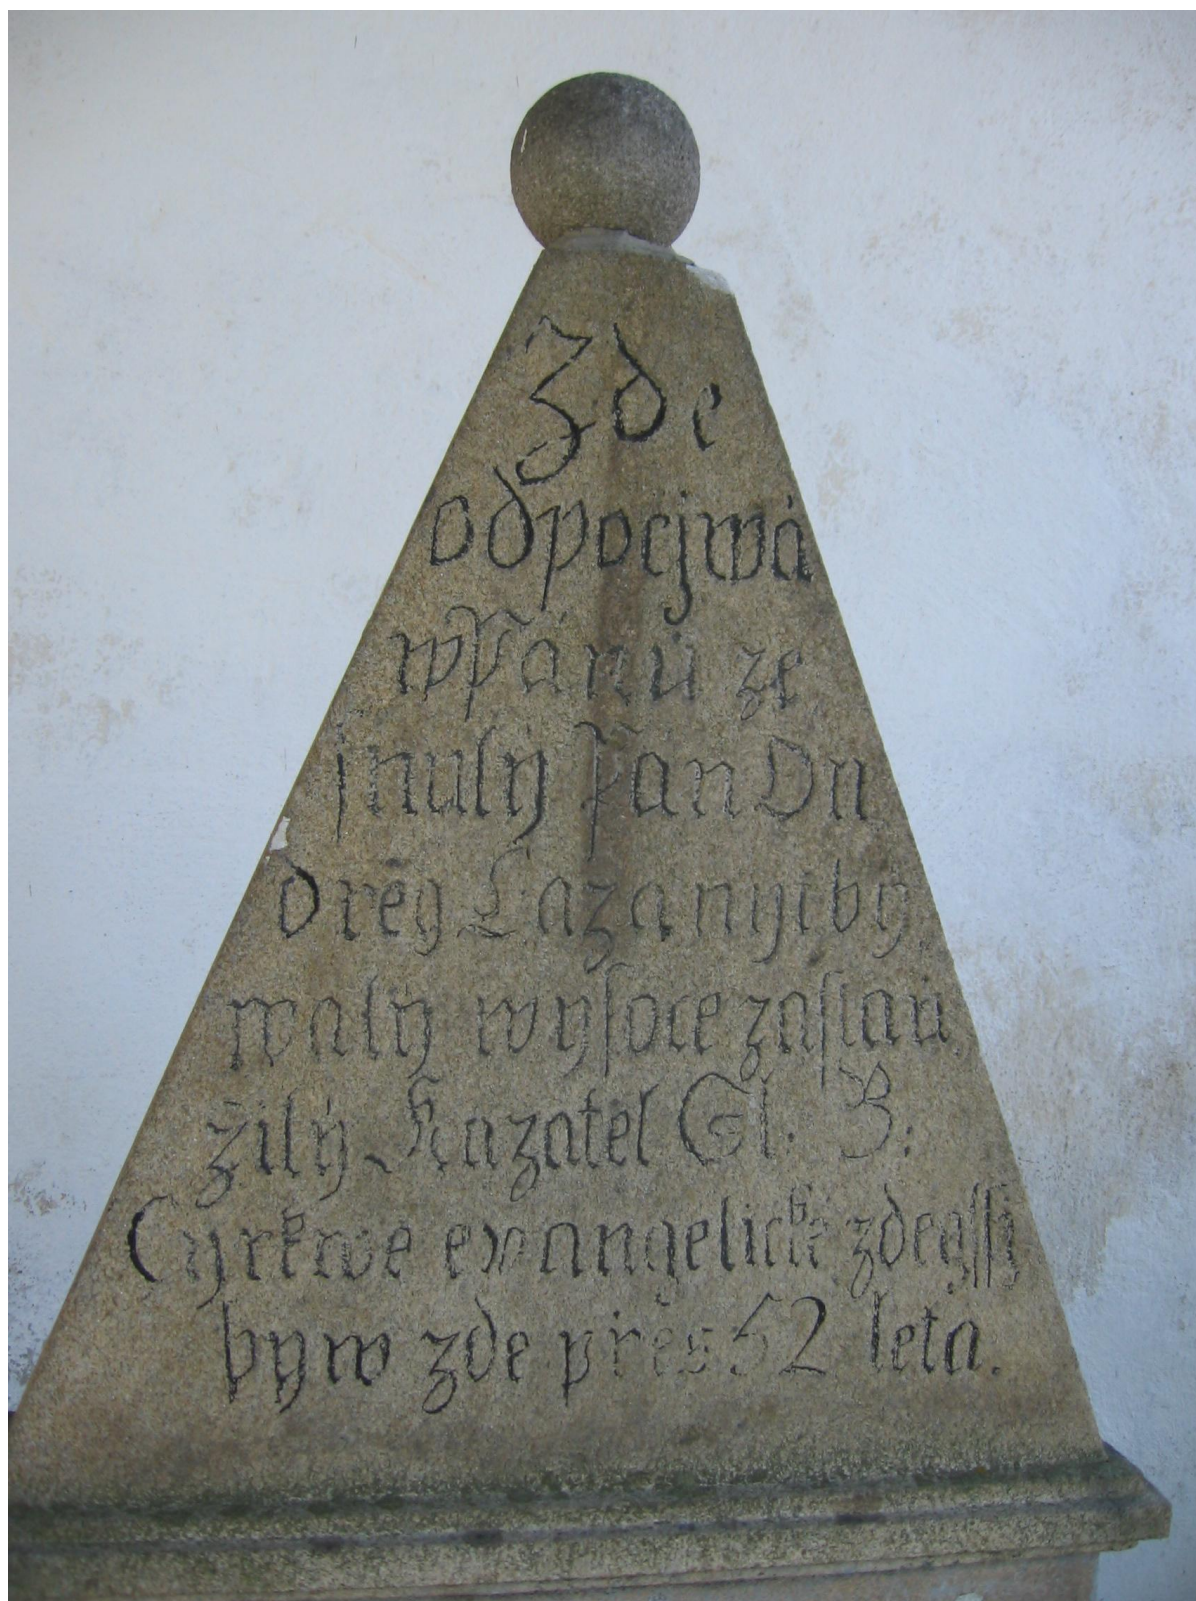 Zde
odpocjwá
w Pánu ze
snulý Pan On
dregˇ Lazanyi bý
walý wysoce zaslaú
žilý Kazatel Gl. B:
Cyrkwe evangelické zdegssj
byw zde přes 52 leta.